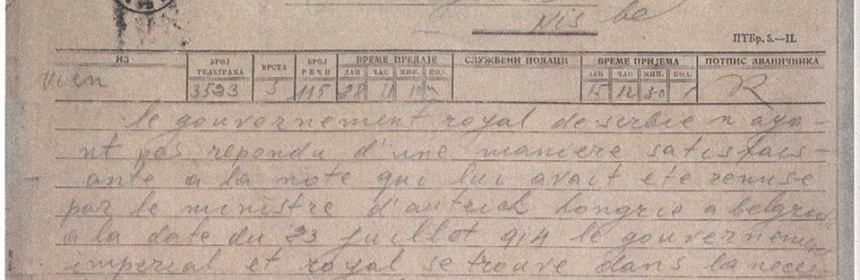 Nis
ПТБр. 5.—II.
ИЗ БРОЈ ТЕЛЕГРАМА ВРСТА БРОЈ РЕЧИ ВРЕМЕ ПРЕДАЈЕ СЛУЖБЕНИ ПОДАЦИ ВРЕМЕ ПРИЈЕМА ПОТПИС ЗВАНИЧНИКА
ДАН ЧАС МИН. ПОД. ДАН ЧАС МИН. ПОД.
Wien 3523 5 115 28 11 12 30
le gouvernement royal de serbie n aya-
nt pas repondu d'une maniere satisfais-
ante a la note qui lui avait ete remise
par le ministre d'autrich hongrie a belgrad
a la date du 23 juillot 914 le gouvernement
imperial et royal se trouve dans la neces